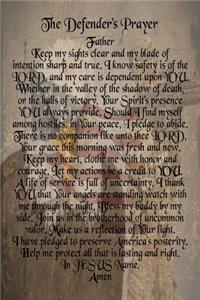 The Defender's Prayer
Father
Keep my sights clear and my blade of
intention sharp and true. I know safety is of the
LORD, and my care is dependent upon YOU.
Whether in the valley of the shadow of death,
or the halls of victory, Your Spirit's presence
YOU always provide. Should I find myself
among hostiles, in Your peace, I pledge to abide.
There is no companion like unto thee LORD.
Your grace this morning was fresh and new.
Keep my heart, clothe me with honor and
courage, let my actions be a credit to YOU.
A life of service is full of uncertainty. I thank
YOU that Your angels are standing watch with
me through the night. Bless my buddy by my
side. Join us in the brotherhood of uncommon
valor. Make us a reflection of Your light.
I have pledged to preserve America's posterity.
Help me protect all that is lasting and right.
In JESUS Name,
Amen